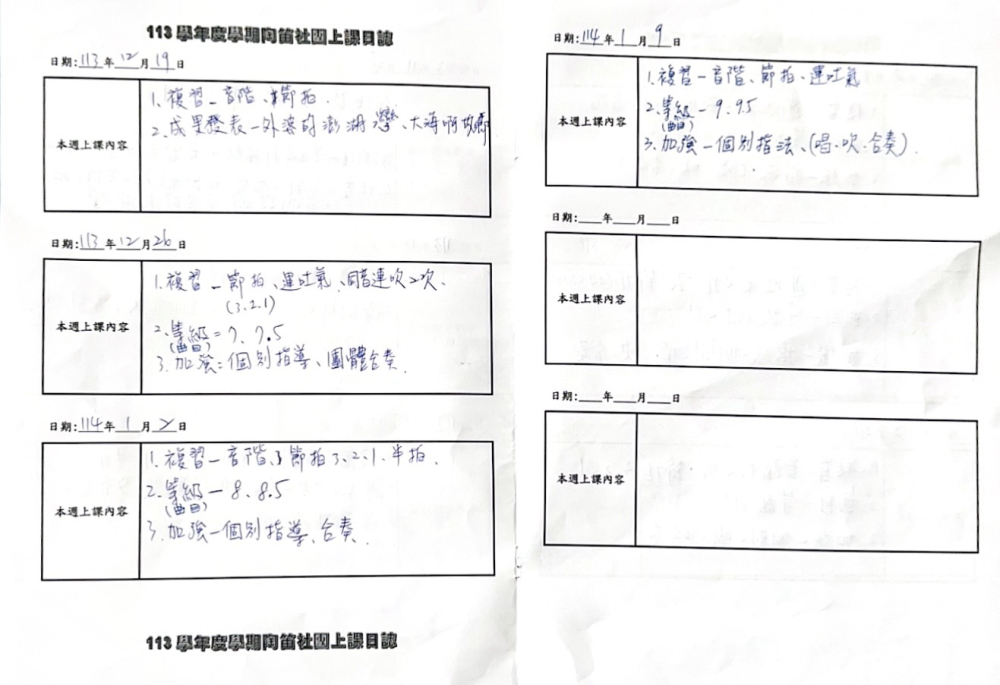 113 學年度學期陶笛社團上課日誌
日期:113年12月19日
本週上課內容
1. 複習－音階、節拍.
2. 成果發表－外婆的澎湖灣、大海啊故鄉
日期:113年12月26日
本週上課內容
1. 複習－節拍、運吐氣、同音連吹2次.
(3.2.1)
2. 等級=7、7.5
(曲目)
3. 加強:個別指導、團體合奏.
日期:114年1月2日
本週上課內容
1. 複習－音階、節拍3、2、1、半拍.
2. 等級－8、8.5
(曲目)
3. 加強－個別指導、合奏.
113 學年度學期陶笛社團上課日誌
日期:114年1月9日
本週上課內容
1. 複習－音階、節拍、運吐氣
2. 等級－9、9.5
(曲目)
3. 加強－個別指法、(唱.吹.合奏).
日期:___年___月___日
本週上課內容
日期:___年___月___日
本週上課內容